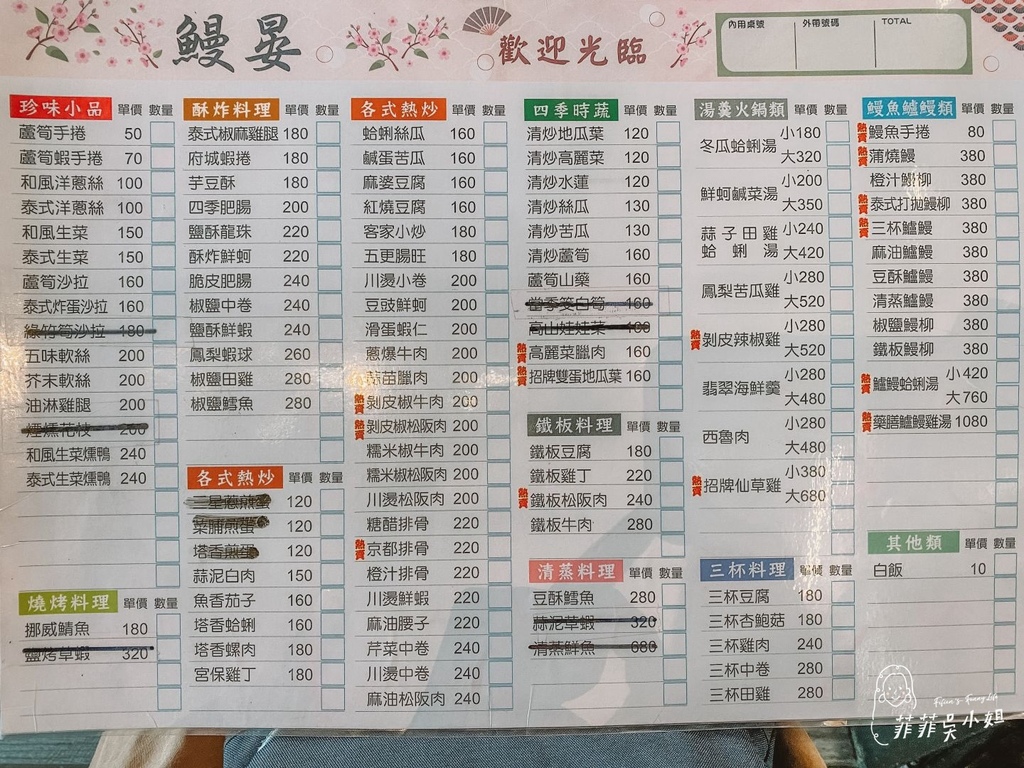 鰻晏
歡迎光臨
內用桌號 外帶號碼 TOTAL
珍味小品 單價 數量
蘆筍手捲 50
蘆筍蝦手捲 70
和風洋蔥絲 100
泰式洋蔥絲 100
和風生菜 150
泰式生菜 150
蘆筍沙拉 160
泰式炸蛋沙拉 160
綠竹筍沙拉 180
五味軟絲 200
芥末軟絲 200
油淋雞腿 200
煙燻花枝 200
和風生菜燻鴨 240
泰式生菜燻鴨 240
燒烤料理 單價 數量
挪威鯖魚 180
鹽烤草蝦 320
酥炸料理 單價 數量
泰式椒麻雞腿 180
府城蝦捲 180
芋豆酥 180
四季肥腸 200
鹽酥龍珠 220
酥炸鮮蚵 220
脆皮肥腸 240
椒鹽中卷 240
鹽酥鮮蝦 240
鳳梨蝦球 260
椒鹽田雞 280
椒鹽鱈魚 280
各式熱炒 單價 數量
三星蔥煎蛋 120
菜脯煎蛋 120
塔香煎蛋 120
蒜泥白肉 150
魚香茄子 160
塔香蛤蜊 160
塔香螺肉 180
宮保雞丁 180
各式熱炒 單價 數量
蛤蜊絲瓜 160
鹹蛋苦瓜 160
麻婆豆腐 160
紅燒豆腐 160
客家小炒 180
五更腸旺 180
川燙小卷 200
豆豉鮮蚵 200
滑蛋蝦仁 200
蔥爆牛肉 200
蒜苗臘肉 200
熱賣 剝皮椒牛肉 200
熱賣 剝皮椒松阪肉 200
糯米椒牛肉 200
糯米椒松阪肉 200
川燙松阪肉 200
糖醋排骨 220
熱賣 京都排骨 220
橙汁排骨 220
川燙鮮蝦 220
麻油腰子 220
芹菜中卷 240
川燙中卷 240
麻油松阪肉 240
四季時蔬 單價 數量
清炒地瓜葉 120
清炒高麗菜 120
清炒水蓮 120
清炒絲瓜 130
清炒苦瓜 130
清炒蘆筍 160
蘆筍山藥 160
當季筊白筍 160
高山娃娃菜 160
熱賣 高麗菜臘肉 160
熱賣 招牌雙蛋地瓜葉 160
鐵板料理 單價 數量
鐵板豆腐 180
鐵板雞丁 220
熱賣 鐵板松阪肉 240
鐵板牛肉 280
清蒸料理 單價 數量
豆酥鱈魚 280
蒜泥草蝦 320
清蒸鮮魚 680
湯羹火鍋類 單價 數量
冬瓜蛤蜊湯 小180
大320
鮮蚵鹹菜湯 小200
大350
蒜子田雞蛤蜊湯 小240
大420
鳳梨苦瓜雞 小280
大520
熱賣 剝皮辣椒雞 小280
大520
翡翠海鮮羹 小280
大480
西魯肉 小280
大480
熱賣 招牌仙草雞 小380
大680
三杯料理 單價 數量
三杯豆腐 180
三杯杏鮑菇 180
三杯雞肉 240
三杯中卷 280
三杯田雞 280
鰻魚鱸鰻類 單價 數量
熱賣 鰻魚手捲 80
熱賣 蒲燒鰻 380
橙汁鰻柳 380
熱賣 泰式打拋鰻柳 380
熱賣 三杯鱸鰻 380
麻油鱸鰻 380
豆酥鱸鰻 380
清蒸鱸鰻 380
椒鹽鰻柳 380
鐵板鰻柳 380
熱賣 鱸鰻蛤蜊湯 小420
大760
熱賣 藥膳鱸鰻雞湯 1080
其他類 單價 數量
白飯 10
菲菲吳小姐